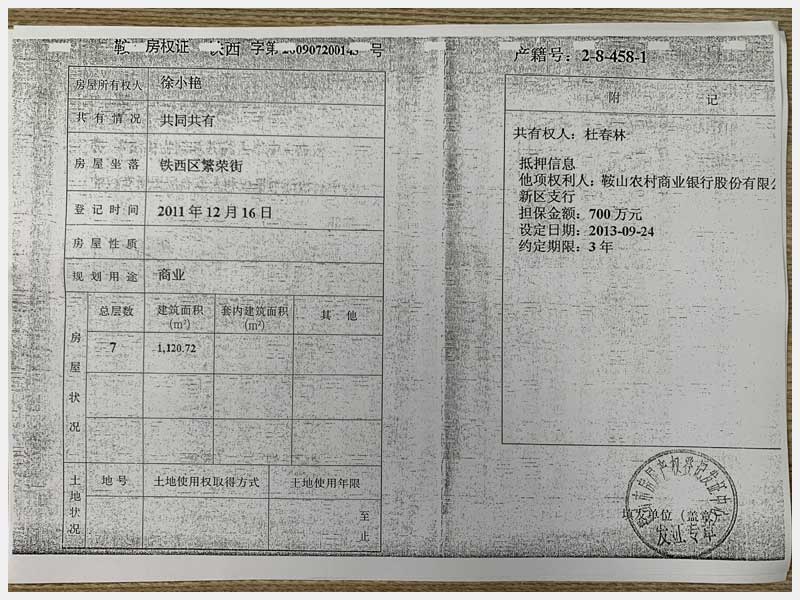 鞍 房权证 铁西 字第 200907200143 号
房屋所有权人 徐小艳
共有情况 共同共有
房屋坐落 铁西区繁荣街
登记时间 2011 年 12 月 16 日
房屋性质
规划用途 商业
房屋状况
总层数 建筑面积 (m²) 套内建筑面积 (m²) 其 他
7 1,120.72
土地状况
地号 土地使用权取得方式 土地使用年限
至
止
产籍号: 2-8-458-1
附 记
共有权人: 杜春林
抵押信息
他项权利人: 鞍山农村商业银行股份有限公
新区支行
担保金额: 700 万元
设定日期: 2013-09-24
约定期限: 3 年
填发单位(盖章)
市房产权登记发证中心
发证专章